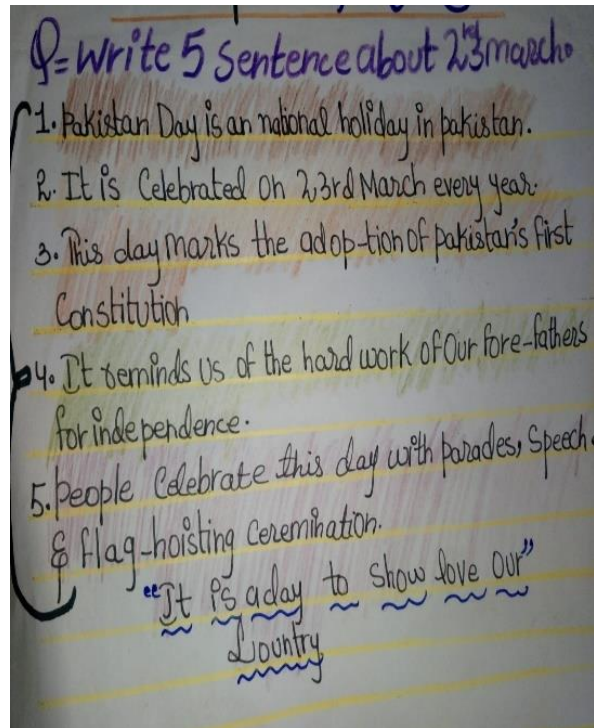 Q= Write 5 Sentence about 23rd march.
1. Pakistan Day is an national holiday in pakistan.
2. It is Celebrated on 23rd March every year.
3. This day marks the adop-tion of pakistan's first
Constitution
4. It reminds us of the hard work of Our fore-fathers
for independence.
5. People Celebrate this day with parades, Speech.
& flag-hoisting Ceremination.
"It is a day to show love our"
Country